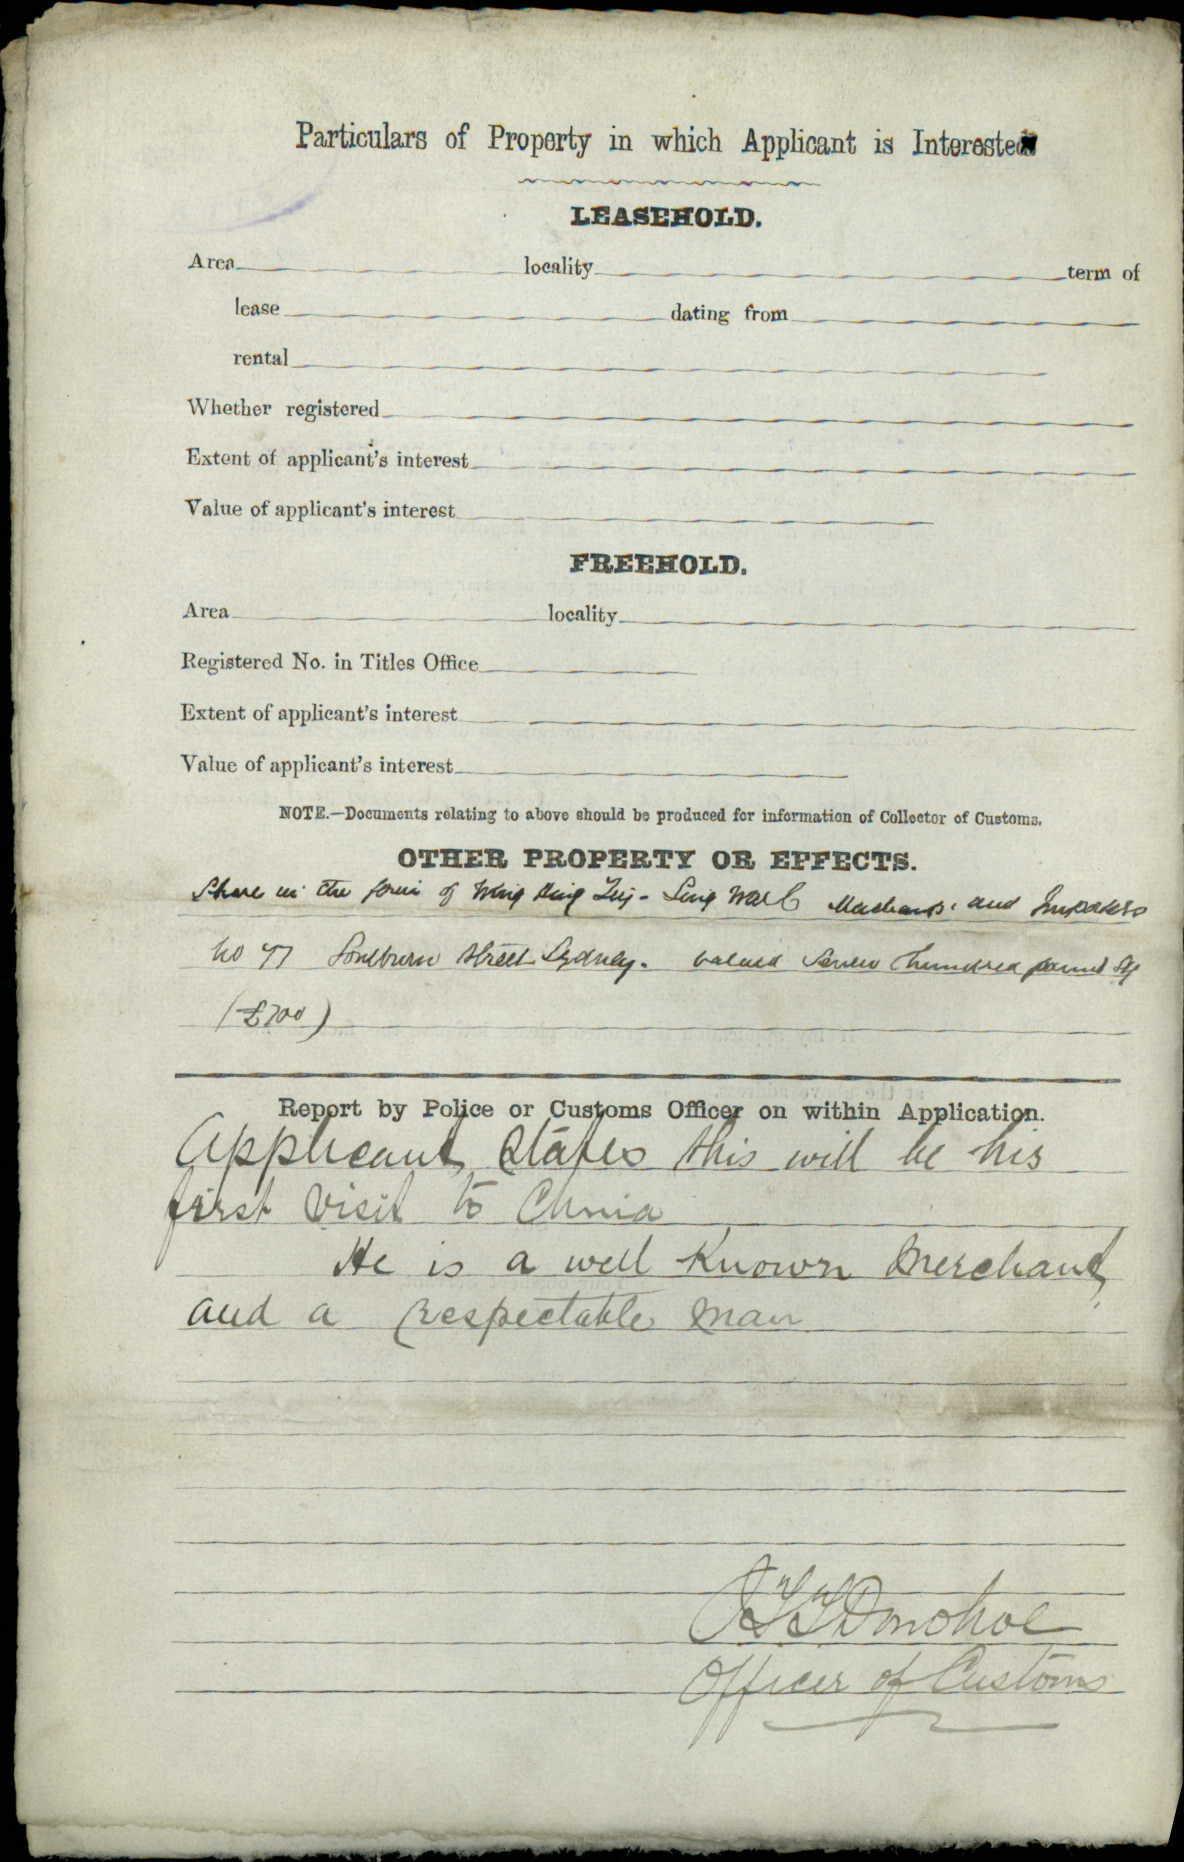 Particulars of Property in which Applicant is Interested
LEASEHOLD.
Area locality term of
lease dating from
rental
Whether registered
Extent of applicant's interest
Value of applicant's interest
FREEHOLD.
Area locality
Registered No. in Titles Office
Extent of applicant's interest
Value of applicant's interest
NOTE.—Documents relating to above should be produced for information of Collector of Customs.
OTHER PROPERTY OR EFFECTS.
Share in the firm of Wing Sing War & Merchants and Importers
no Street Sydney. valued Seven hundred pound Stg
(£700)
Report by Police or Customs Officer on within Application.
Applicant States this will be his
first visit to China
He is a well known Merchant,
and a respectable man
Donohoe
Officer of Customs